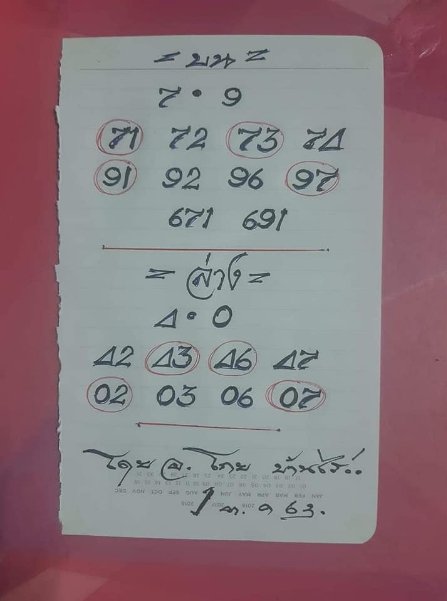 = บน =
7 • 9
71 72 73 74
91 92 96 97
671 691
= ล่าง =
4 • 0
42 43 46 47
02 03 06 07
โดย อ. โภย บ้านไร่..
1 63.